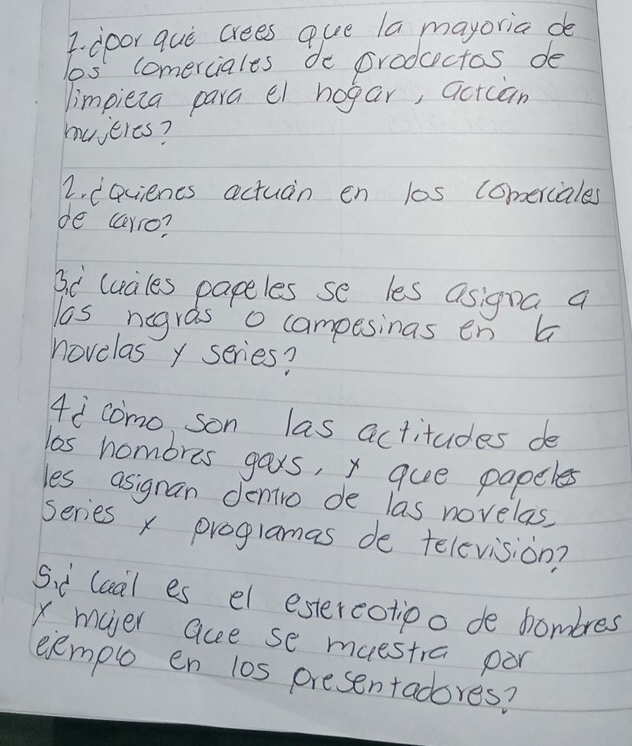 1.¿por qué crees que la mayoria de
los comerciales de productos de
limpieza para el hogar, actúan
mujeres?
2.¿Quienes actuán en los comerciales
de carro?
3¿ Cuáles papeles se les asigna a
las negras o campesinas en la
novelas y series?
4¿ cómo son las actitudes de
los hombres gays, y que papeles
les asignan dentro de las novelas,
series y programas de televisión?
5.¿ Cuál es el estereotipo de hombres
y mujer que se muestra por
ejemplo en los presentadores?